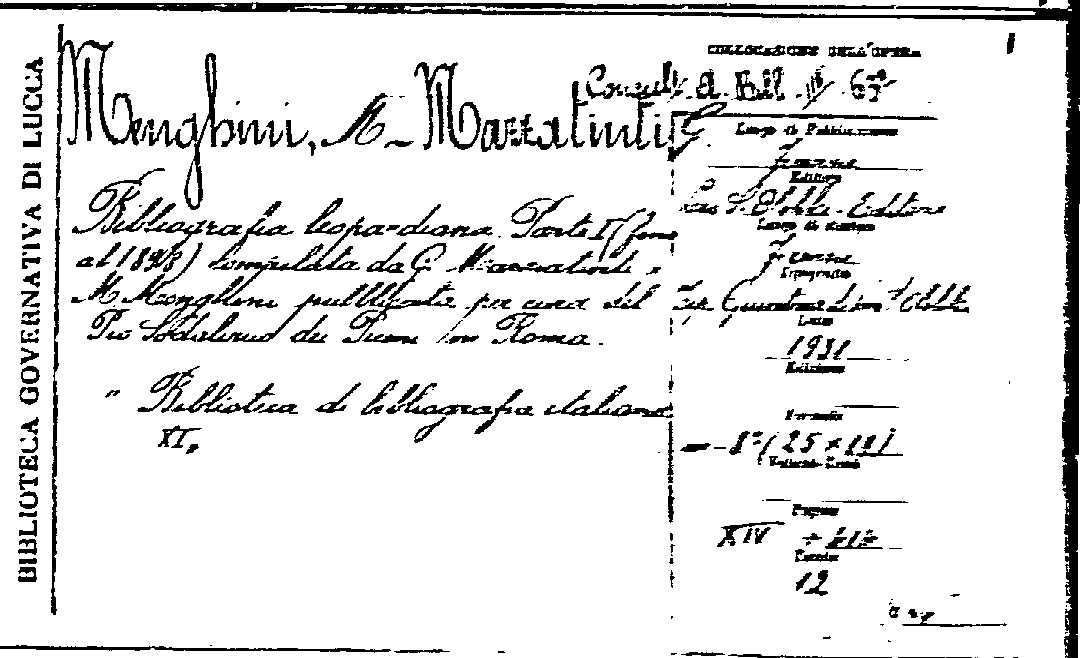 BIBLIOTECA GOVERNATIVA DI LUCCA
COLLOCAZIONE DELL'OPERA
1
Consult. A. Bibl. III/
Menghini, M - Mazzatinti G.
Luogo di Pubblicazione
Firenze
Editore
Leo S. Olschki - Editore
Bibliografia leopardiana. Parte I (fino
al 1898) compilata da G. Mazzatinti e
M. Menghini pubblicata per cura del
Pio Sodalizio dei Piceni in Roma.
Luogo di stampa
Firenze
Tipografia
Tip. Giuntina
Data
1931
Edizione
" Biblioteca di bibliografia italiana
XI,
Formato
- 8° (25 × 18)
Pagine
XIV +
12